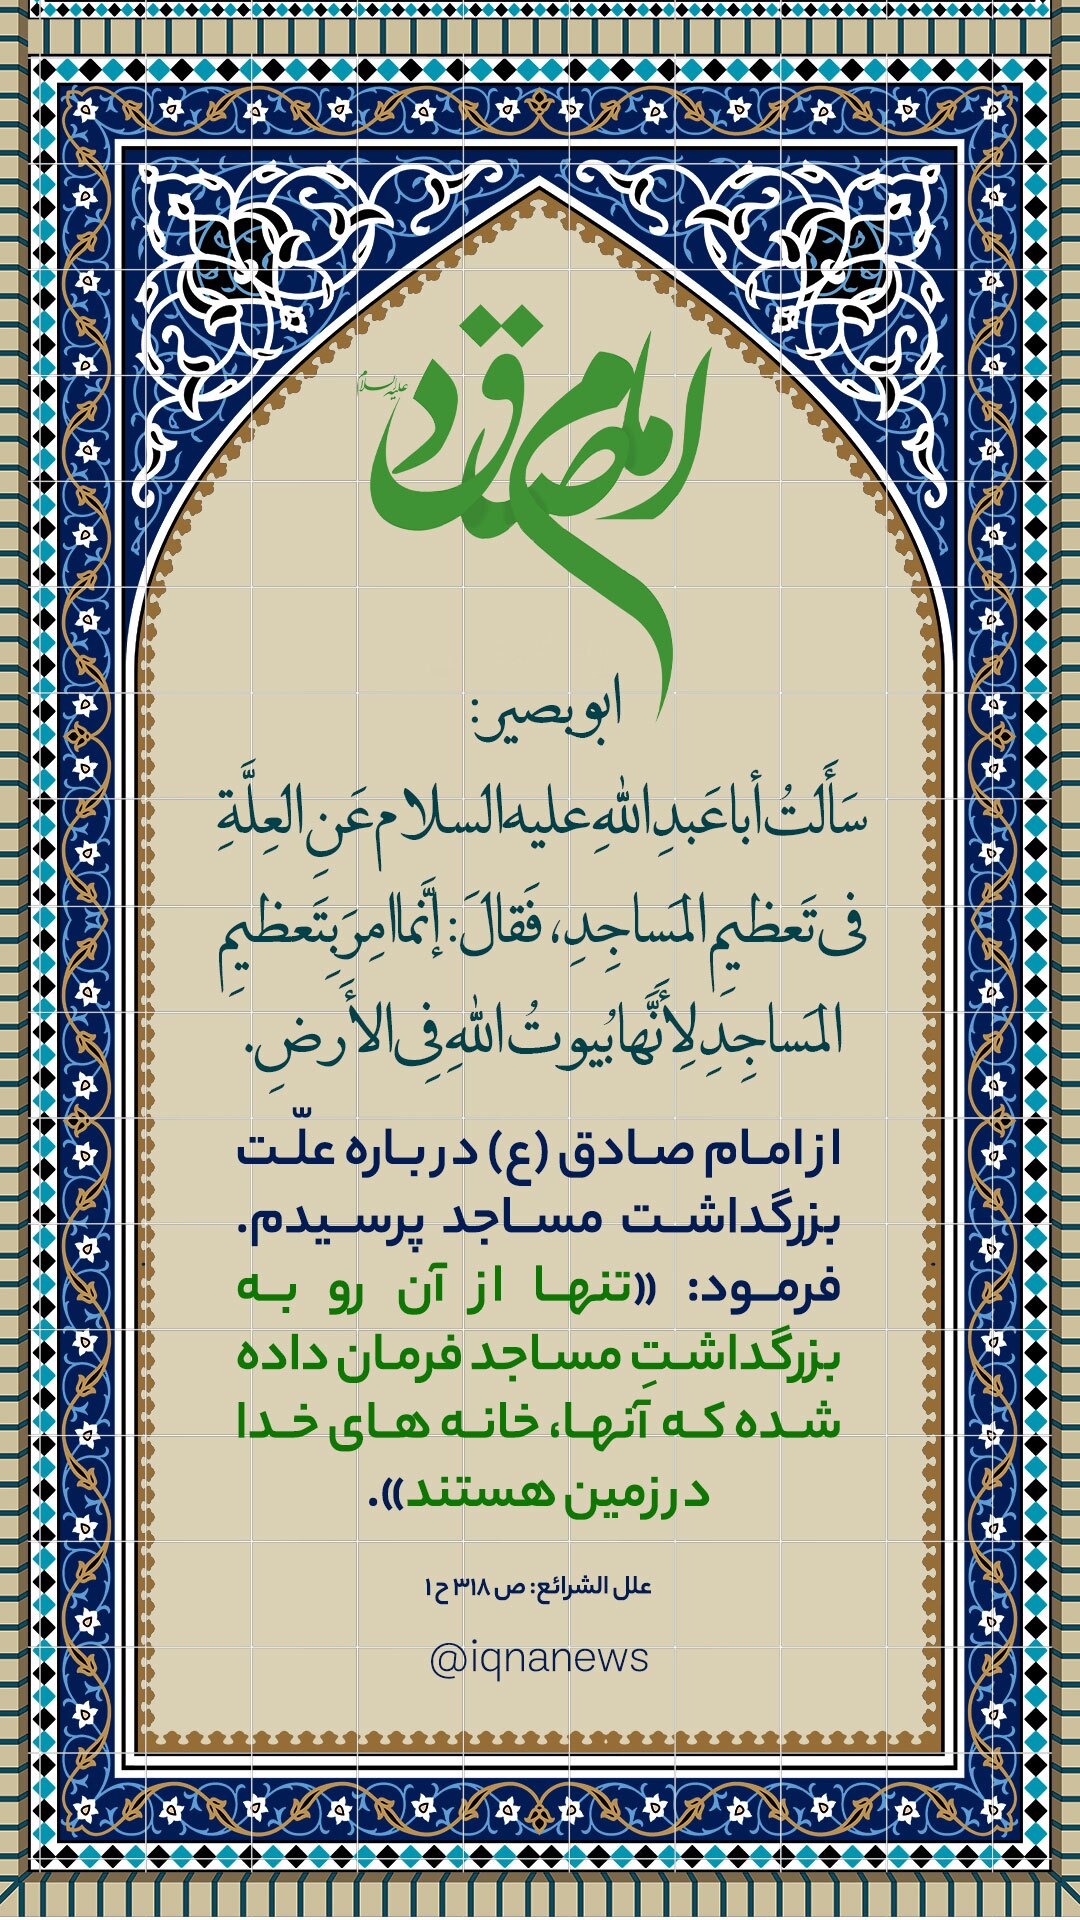 امام صادق
علیه السلام
ابوبصیر:
سَأَلتُ أباعَبدِاللهِ علیه السلام عَنِ العِلَّةِ
فی تَعظیمِ المَساجِدِ، فَقالَ: إنَّما امِرَ بِتَعظیمِ
المَساجِدِ لِأَنَّها بُیوتُ اللهِ فِی الأَرضِ.
از امام صادق (ع) درباره علّت
بزرگداشت مساجد پرسیدم.
فرمود: «تنها از آن رو به
بزرگداشتِ مساجد فرمان داده
شده که آنها، خانه های خدا
در زمین هستند».
علل الشرائع: ص ۳۱۸ ح ۱
@iqnanews